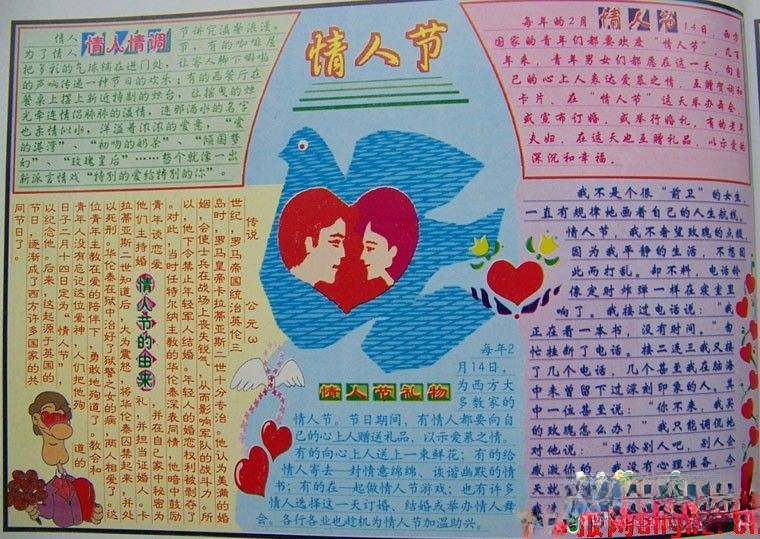 情人节
情人情调
情人节讲究温馨浪漫，
为了情人节，有的咖啡屋
把多彩的气球铺在进门处，让客人脚下噼啪
的声响传递一种节日的欢乐；有的西餐厅在
餐桌上摆上新近特制的烛台，让摇曳的烛
光牵连情侣脉脉的温情，连那酒水的名字
也柔情似水，洋溢着浓浓的爱意，“爱
的港湾”、“初吻的奶茶”、“倾国梦
幻”、“玫瑰皇后”……整个就像一出
新派言情戏“特别的爱给特别的你”。
情人节
每年的2月14日，西方
国家的青年们都要欢度“情人节”，几百
年来，青年男女们都愿在这一天，向自
己的心上人表达爱慕之情，互赠贺词和
卡片，在“情人节”这天举办舞会，
或宣布订婚，或举行婚礼，有的老年
夫妇，在这天也互赠礼品，以示爱的
深沉和幸福。
情人节的由来
传说公元3
世纪，罗马帝国统治英伦三
岛时，罗马皇帝卡拉蒂亚斯二世十分专治。他认为美满的婚
姻，会使士兵在战场上丧失锐气，从而影响军队的战斗力。所
以，他下令禁止年轻军人结婚。年轻人的婚恋权利被剥夺了。
对此，当时任特尔纳主教的华伦泰深表同情，他暗中鼓励
青年谈恋爱，并在自己家中秘密为
他们主持婚礼，并担当证婚人。卡
拉蒂亚斯二世知道后，大为震怒，将华伦泰囚禁起来，并处
以死刑。华伦泰在狱中治好了狱警之女的病，两人相爱了。这
位青年主教在爱的陪伴下，勇敢地殉道了。教会和
青年人没有忘记这位爱神，人们把他殉道的
日子二月十四日定为“情人节”，
以纪念他。后来，这起源于英国的
节日，逐渐成了西方许多国家的共
同节日了。
情人节礼物
每年2
月14日，
为西方大
多数家的
情人节。节日期间，有情人都要向自
己的心上人赠送礼品，以示爱慕之情。
有的向心上人送上一束鲜花；有的给
情人寄去一封情意绵绵，诙谐幽默的情
书；有的在一起做情人节游戏；也有许多
情人选择这一天订婚、结婚或举办情人舞
会。各行各业也趁机为情人节加温助兴。
我不是个很“前卫”的女生，
一直有规律地画着自己的人生航线，
情人节，我不奢望玫瑰的点缀，
因为我平静的生活，不想因
此而打乱。却不料，电话铃
像定时炸弹一样在寝室里
响了。我接过电话说：“我
正在看一本书，没有时间。”匆
忙挂断了电话。接二连三我又接
了几个电话，几个甚至我在脑海
中未曾留下过深刻印象的人。其
中一位甚至说：“你不来，我买
的玫瑰怎么办？”我只能调侃地
对他说：“送给别人吧，别人会
感激你
没有心理准备，今
天就